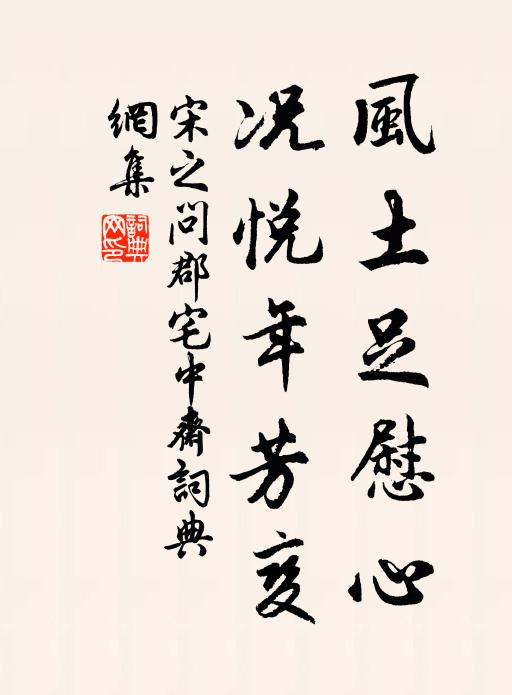 風土足慰心
况悦年芳变
宋之问郡宅中齋詞典
網集
詞典網印